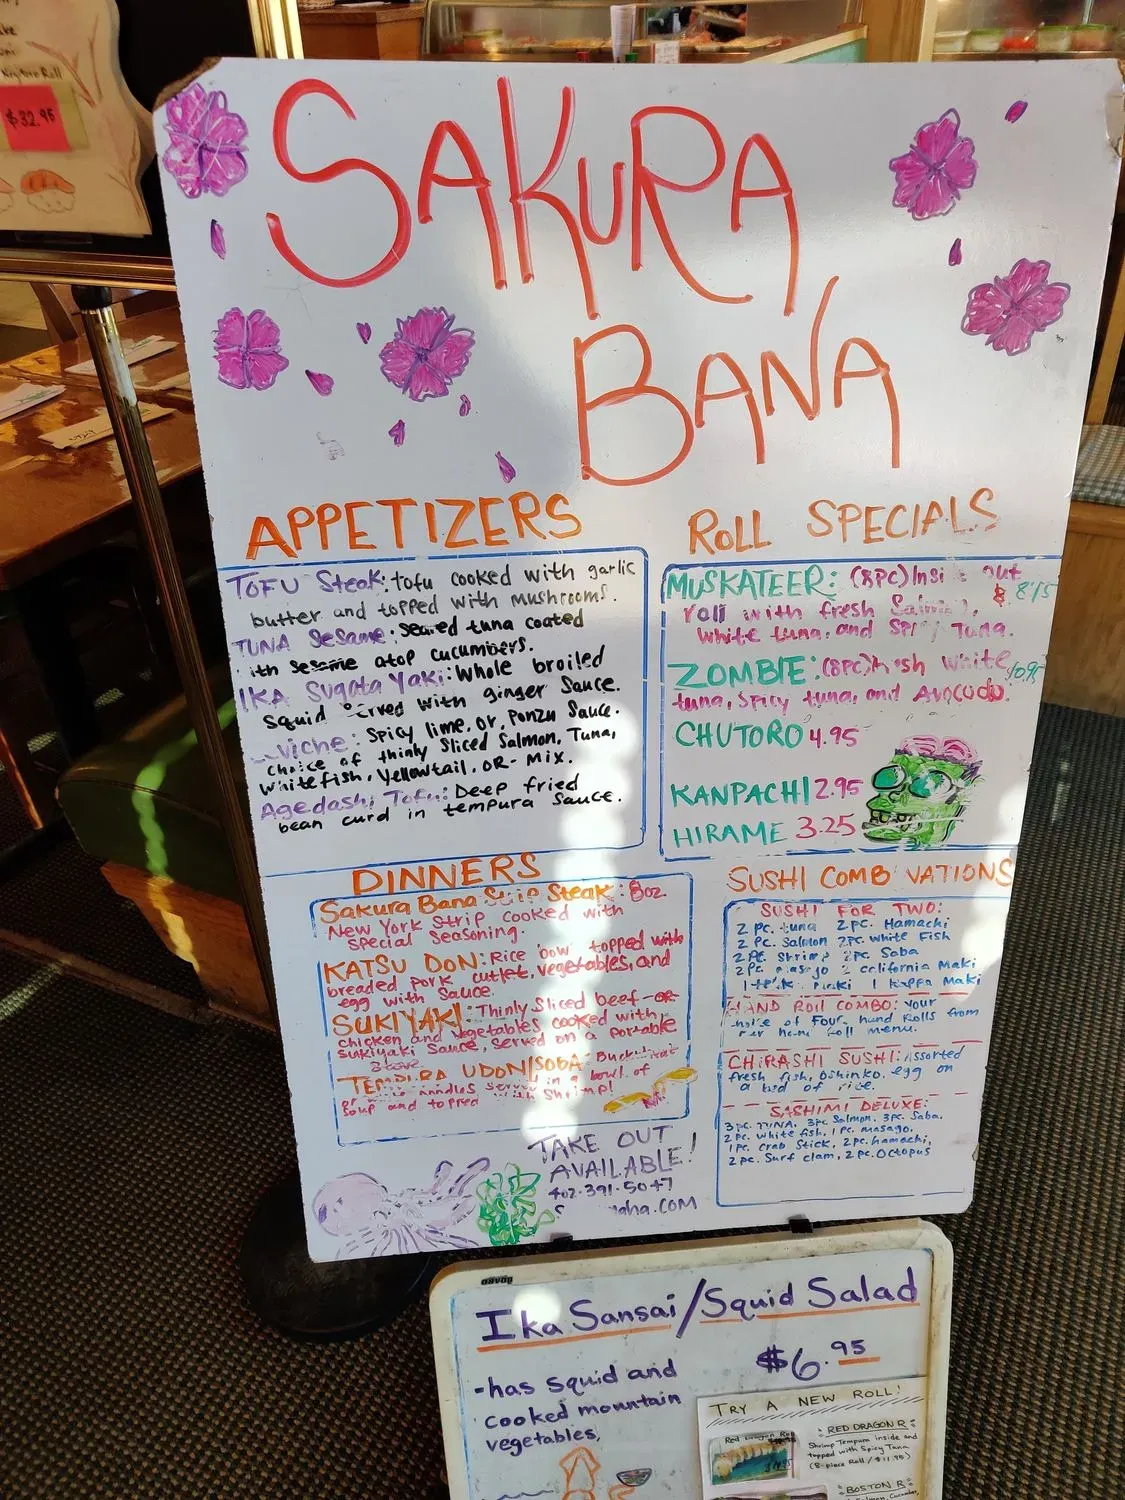 Roll
$32.95
SAKURA
BANA
APPETIZERS
TOFU Steak: tofu cooked with garlic
butter and topped with mushrooms.
TUNA Sesame: Seared tuna coated
ith Sesame atop cucumbers.
IKA Sugata Yaki: Whole broiled
Squid served with ginger Sauce.
viche: Spicy lime, or, Ponzu Sauce.
choice of thinly Sliced Salmon, Tuna,
whitefish, Yellowtail, OR- Mix.
Agedashi Tofu: Deep fried
bean curd in tempura Sauce.
ROLL SPECIALS
MUSKATEER: (8PC) Insi out
$ 8/5
roll with fresh Salmon,
white tuna, and Spicy Tuna.
ZOMBIE: (8PC) fresh white
tuna, Spicy tuna, and Avocado.
CHUTORO 4.95
KANPACHI 2.95
HIRAME 3.25
DINNERS
Sakura Bana Strip Steak: 8oz.
New York Strip cooked with
special Seasoning.
KATSU DON: Rice bowl topped with
breaded pork cutlet, vegetables, and
egg with Sauce.
SUKIYAKI: Thinly Sliced beef -OR-
chicken and vegetables cooked with
sukiyaki Sauce, served on a portable
stove.
TEMPURA UDON/SOBA: Buckwheat
or noodles served in a bowl of
soup and topped with Shrimp!
SUSHI COMB NATIONS
SUSHI FOR TWO:
2 pc. tuna 2 pc. Hamachi
2 pc. Salmon 2 pc. white Fish
2 pc. Shrimp 2 pc. Saba
2 pc. masago 2 california Maki
1 Maki 1 kappa Maki
HAND ROLL COMBO: your
choice of Four, hand Rolls from
our hand roll menu.
CHIRASHI SUSHI: Assorted
fresh fish, Oshinko, egg on
a bed of rice.
SASHIMI DELUXE:
3 pc. TUNA, 3 pc. Salmon, 3 pc. Saba,
2 pc. white fish, 1 pc. masago,
1 pc. Crab Stick, 2 pc. hamachi,
2 pc. Surf clam, 2 pc. Octopus
TAKE OUT
AVAILABLE!
402-391-5047
aha.com
Ika Sansai/Squid Salad
$6.95
-has squid and
cooked mountain
vegetables,
TRY A NEW ROLL!
Red Dragon Roll
$11.95
RED DRAGON R
Shrimp Tempura inside and
topped with Spicy Tuna
(8-piece Roll / $11.95)
BOSTON R
Salmon, Cucumber,